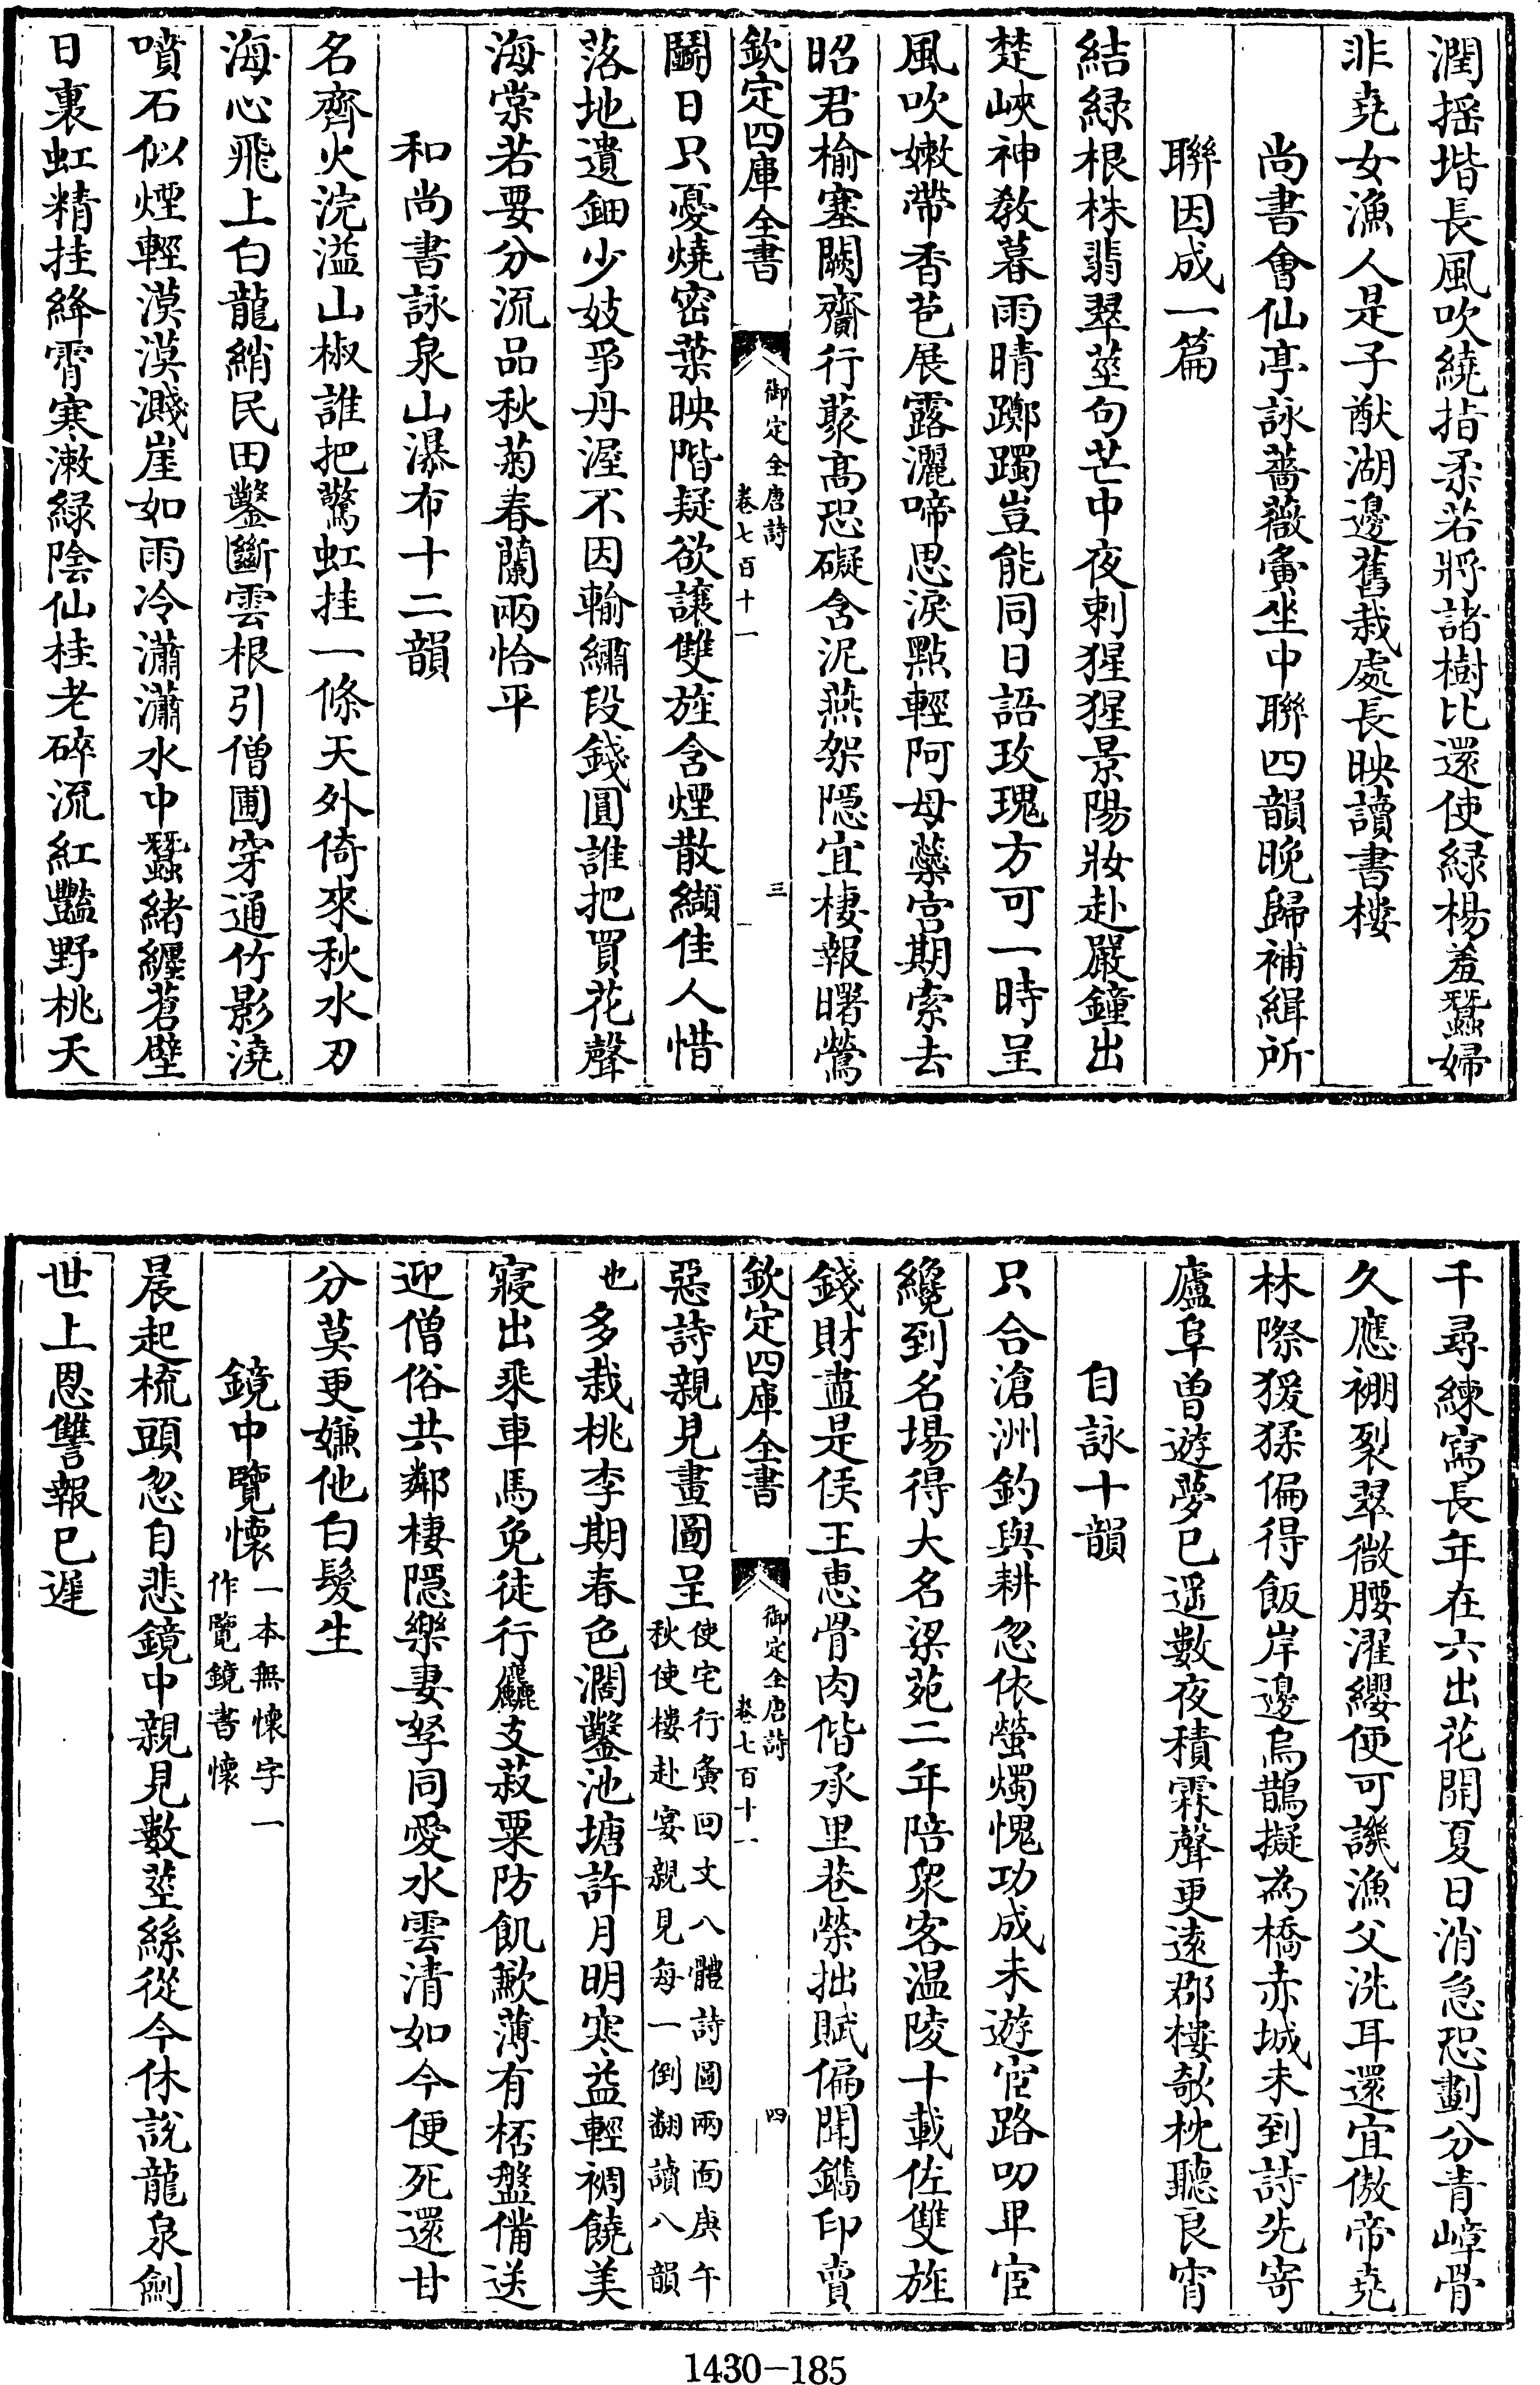 潤揺堦長風吹繞指柔若將諸樹比還使緑楊羞蠶婦
非堯女漁人是子猷湖邊舊栽處長映讀書樓
尚書會仙亭詠薔薇夤坐中聯四韻晚歸補緝所
聯因成一篇
結緑根株翡翠莖句芒中夜刺猩猩景陽妝赴嚴鐘出
楚峽神教暮雨晴躑躅豈能同日語玫瑰方可一時呈
風吹嫩帶香苞展露灑啼思淚點輕阿母蘂宮期索去
昭君榆塞闕齎行叢高恐礙含泥燕架隠宜棲報曙鶯
欽定四庫全書
御定全唐詩
卷七百十一
三
鬭日只憂燒密葉映階疑欲讓雙旌含煙散纈佳人惜
落地遺鈿少妓爭丹渥不因輸繡段錢圓誰把買花聲
海棠若要分流品秋菊春蘭兩恰平
和尚書詠泉山瀑布十二韻
名齊火浣溢山椒誰把驚虹挂一條天外倚來秋水刃
海心飛上白龍綃民田鑿斷雲根引僧圃穿通竹影澆
噴石似煙輕漠漠濺崖如雨冷瀟瀟水中蠶緒纏蒼壁
日裏虹精挂絳霄寒漱緑陰仙桂老碎流紅豔野桃夭
千尋練寫長年在六出花開夏日消急恐劃分青嶂骨
久應裫裂翠微腰濯纓便可譏漁父洗耳還宜傲帝堯
林際猨猱偏得飯岸邊烏鵲擬為橋赤城未到詩先寄
廬阜曽遊夢已遥數夜積霖聲更遠郡樓欹枕聽良宵
自詠十韻
只合滄洲釣與耕忽依螢燭愧功成未遊宦路叨卑宦
纔到名場得大名梁苑二年陪衆客温陵十載佐雙旌
錢財盡是侯王惠骨肉偕承里巷榮拙賦偏聞鐫印賣
欽定四庫全書
御定全唐詩
卷七百十一
四
惡詩親見畫圖呈使宅行夤回文八體詩圖兩面庚午
秋使樓赴宴親見每一倒翻讀八韻
也多栽桃李期春色濶鑿池塘許月明寒益輕裯饒美
寢出乘車馬免徒行麤支菽粟防飢歉薄有桮盤備送
迎僧俗共鄰棲隠樂妻孥同愛水雲清如今便死還甘
分莫更嫌他白髪生
鏡中覽懷一本無懷字一
作覽鏡書懷
晨起梳頭忽自悲鏡中親見數莖絲從今休說龍泉劍
世上恩讐報已遲
1430-185